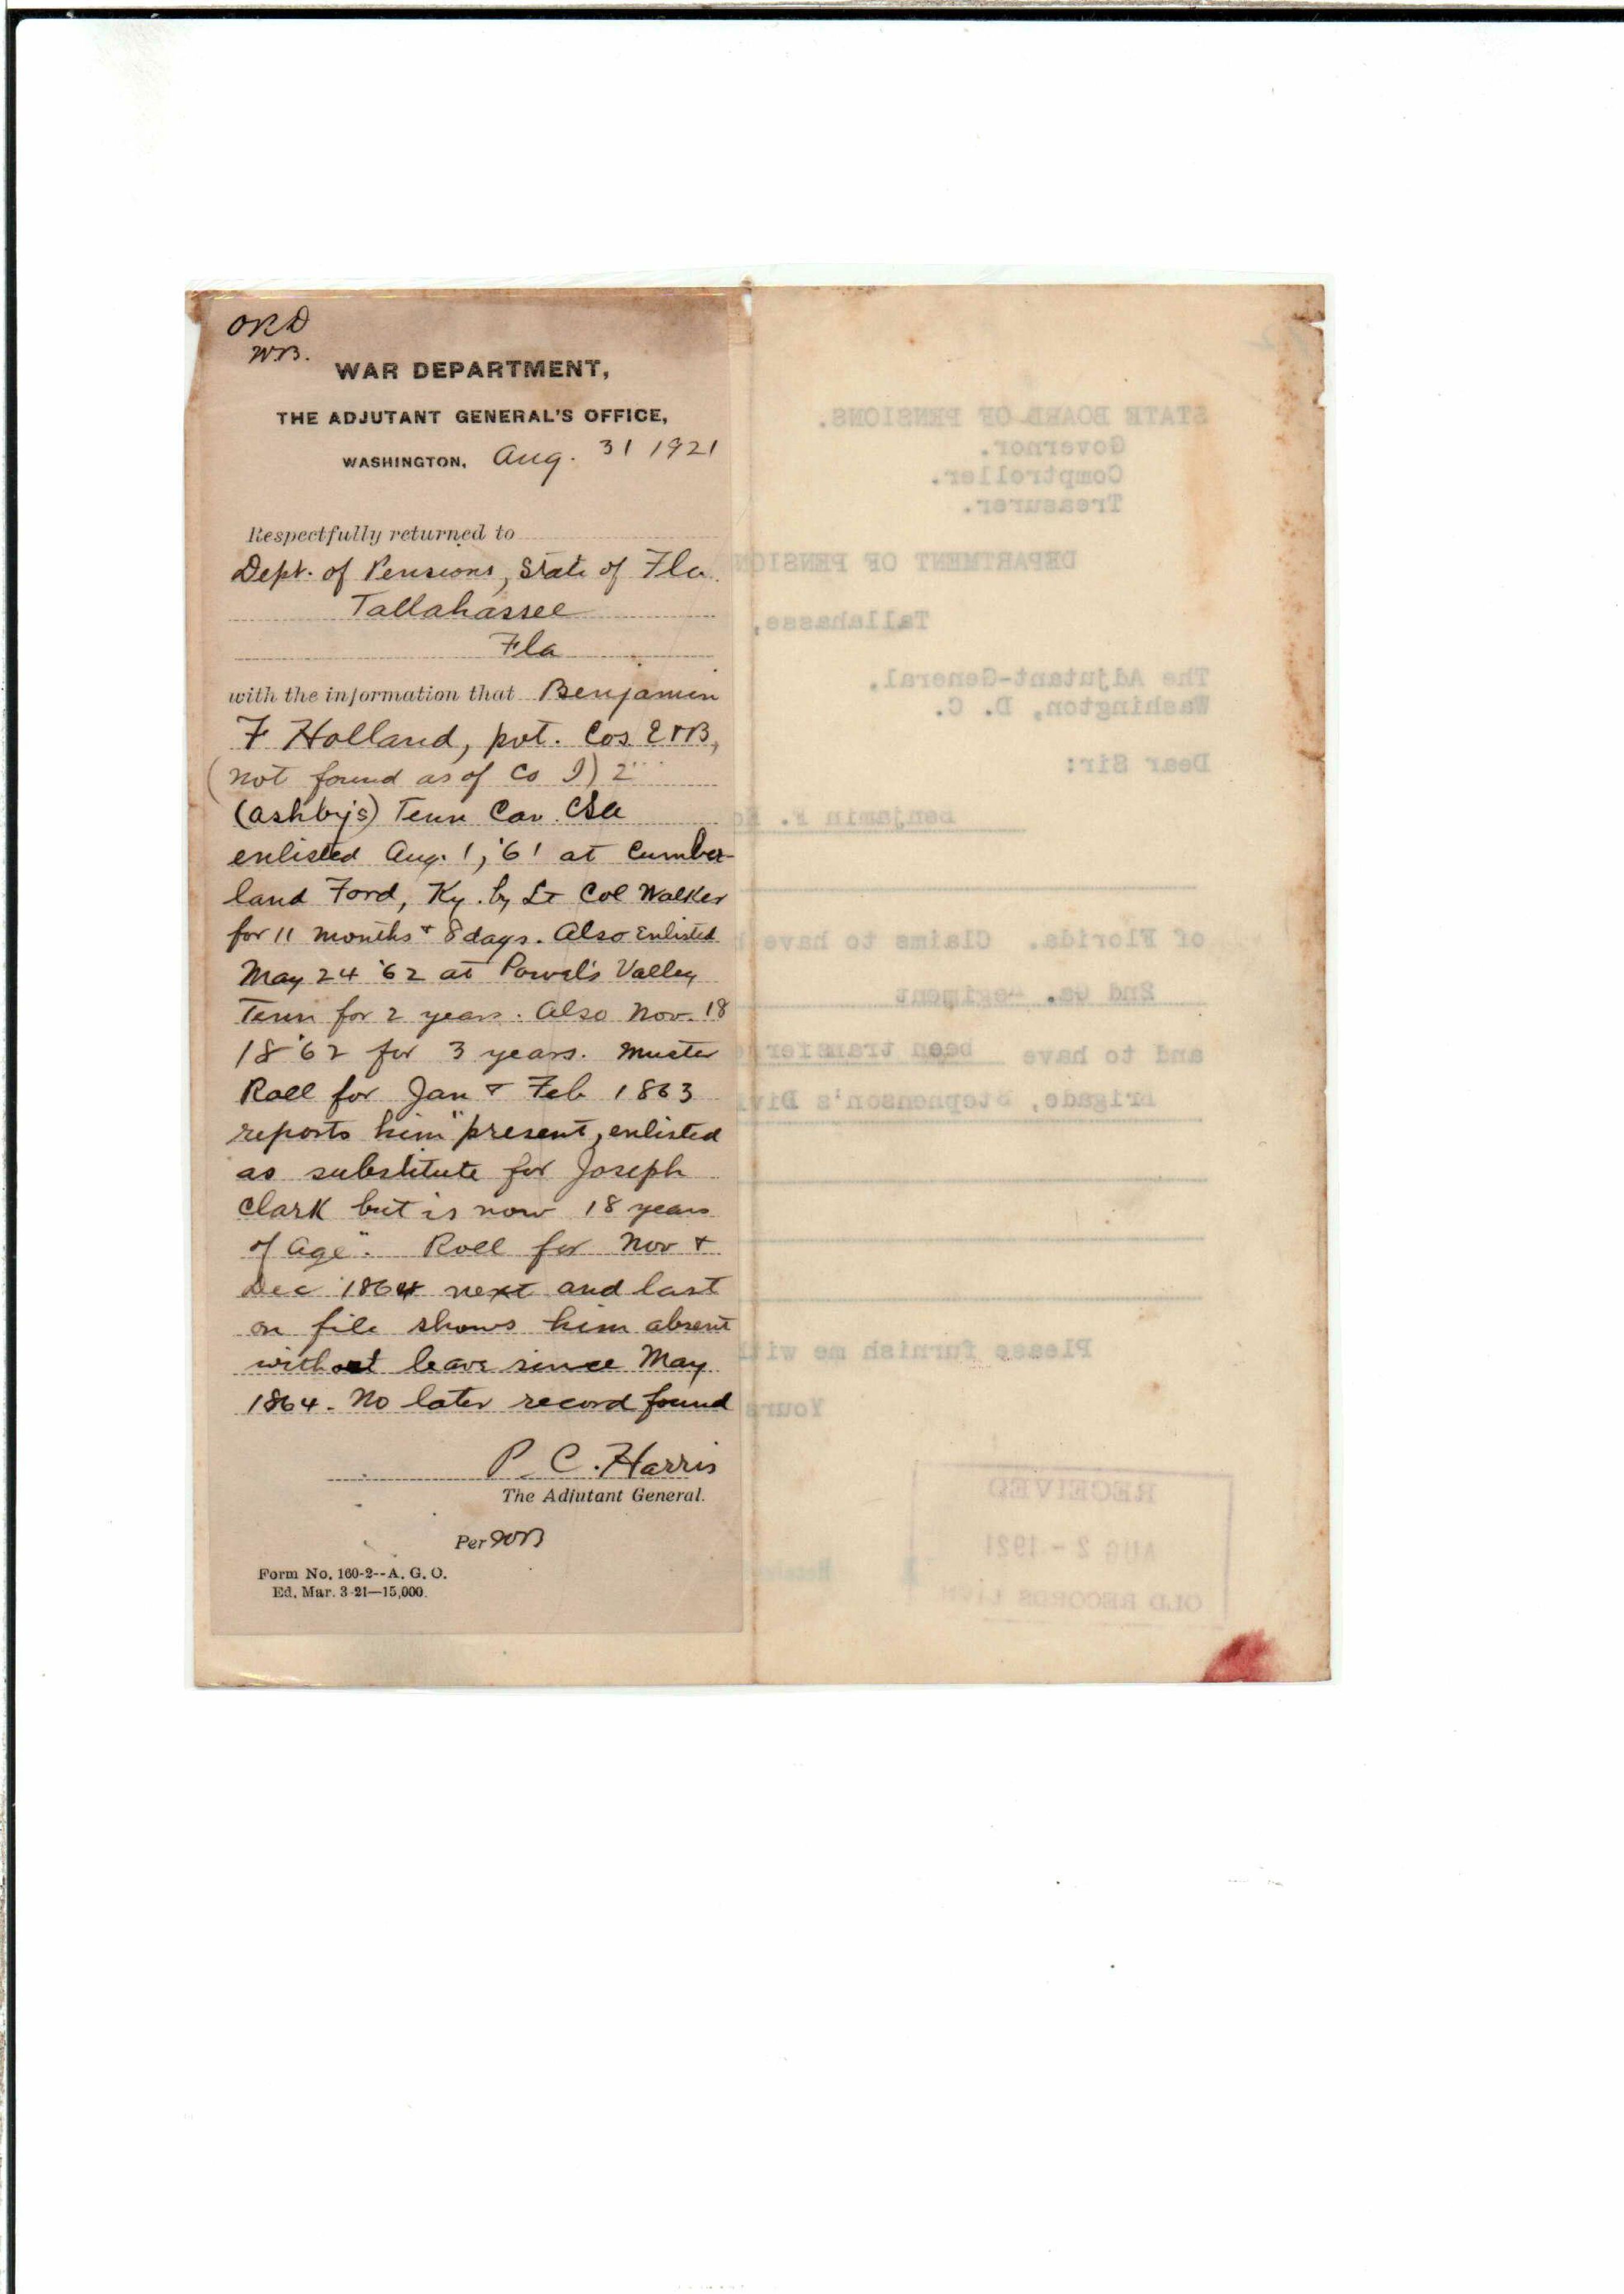 ORD
WB.
WAR DEPARTMENT,
THE ADJUTANT GENERAL'S OFFICE,
WASHINGTON, Aug. 31 1921
Respectfully returned to
Dept. of Pensions, State of Fla.
Tallahassee
Fla
with the information that Benjamin
F Holland, pvt. Cos E & B,
(not found as of Co I) 2"
(Ashby's) Tenn Cav. CSA
enlisted Aug. 1, '61 at Cumber-
land Ford, Ky. by Lt Col Walker
for 11 months & 8 days. Also Enlisted
May 24 '62 at Powel's Valley
Tenn for 2 years. Also Nov. 18
18'62 for 3 years. Muster
Roll for Jan & Feb 1863
reports him "present, enlisted
as substitute for Joseph
Clark but is now 18 years
of Age". Roll for Nov &
Dec 1864 next and last
on file shows him absent
without leave since May
1864. No later record found
P. C. Harris
The Adjutant General.
Per WB
Form No. 160-2--A. G. O.
Ed. Mar. 3-21—15,000.
STATE BOARD OF PENSIONS.
Governor.
Comptroller.
Treasurer.
DEPARTMENT OF PENSION
Tallahasse,
The Adjutant-General,
Washington, D. C.
Dear Sir:
Benjamin F. Ho
of Florida. Claims to have
2nd Ga. Regiment
and to have been transferre
Brigade, Stephenson's Divi
Please furnish me wit
Yours
RECEIVED
AUG 2 - 1921
OLD RECORDS